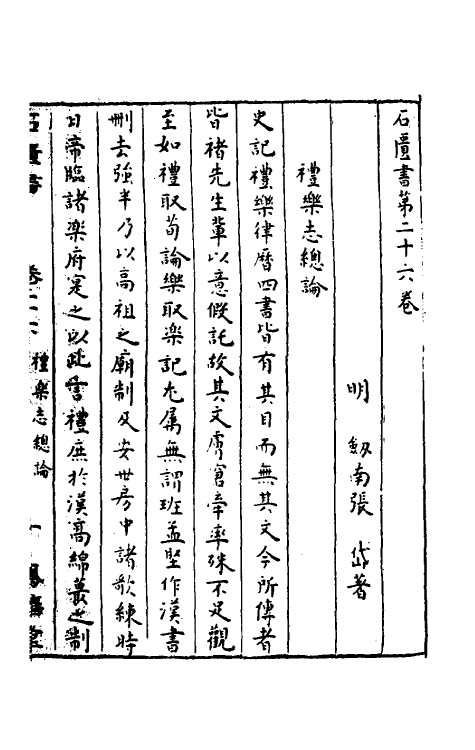 石匱書第二十六卷
明 劔南張 岱著
禮樂志總論
史記禮樂律曆四書皆有其目而無其文今所傳者
皆褚先生輩以意假託故其文膚窘牽率殊不足觀
至如禮取荀論樂取樂記尤属無謂班孟堅作漢書
刪去强半乃以高祖之廟制及安世房中諸歌練時
日帝臨諸樂府寔之以此言禮庶於漢高綿蕞之制
石匱書 卷二十六 禮樂志總論 一 鳳嬉堂